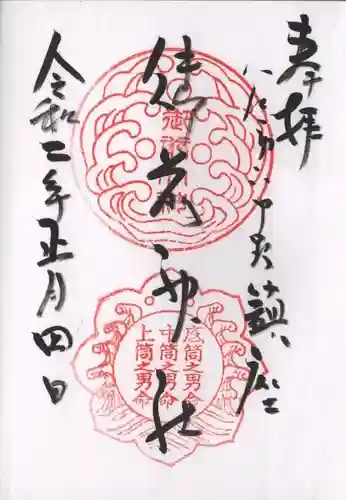 奉拝
いたみ中央鎮座
御前神社
令和二年正月四日
御前神社
底筒之男命
中筒之男命
上筒之男命